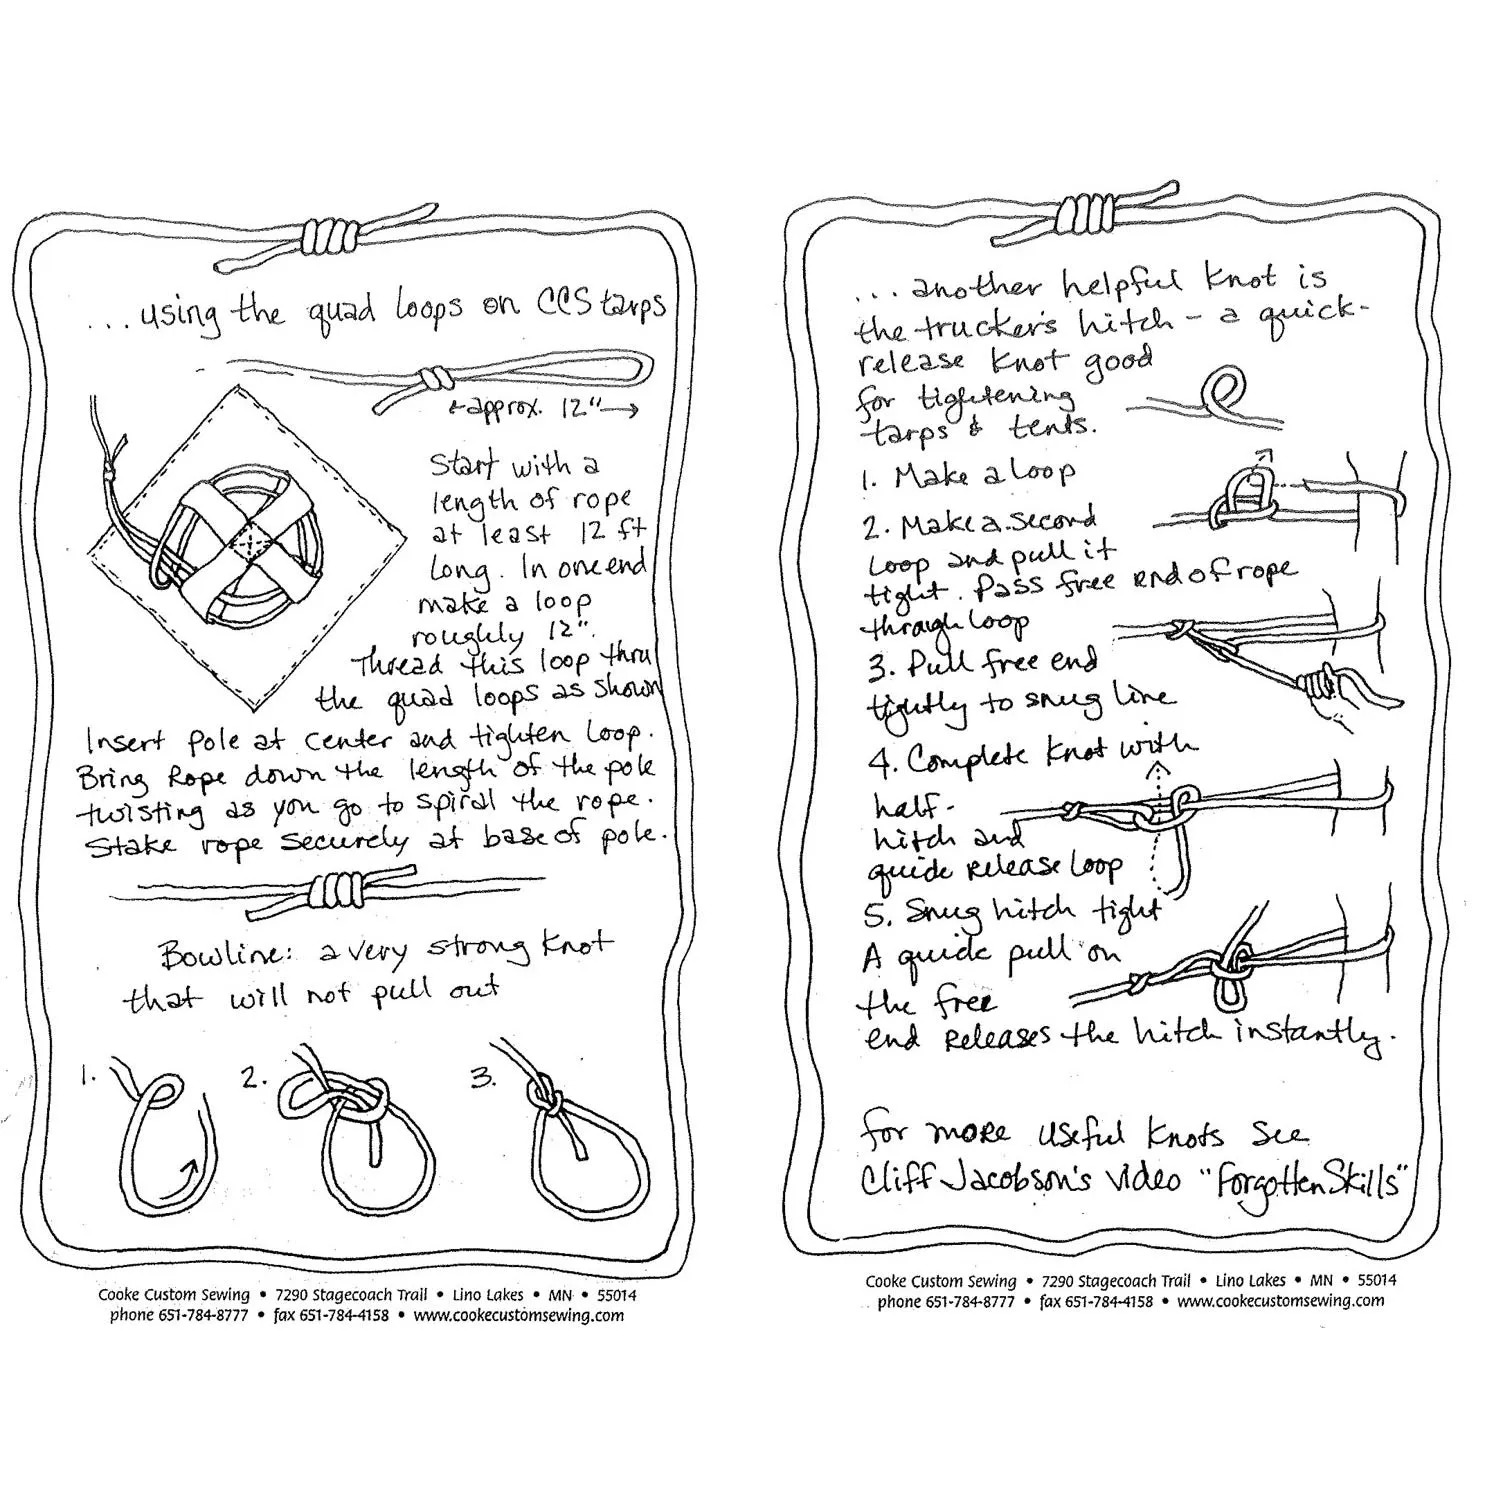 ...using the quad loops on CCS tarps
←approx. 12"→
Start with a
length of rope
at least 12 ft
long. In one end
make a loop
roughly 12".
Thread this loop thru
the quad loops as shown
Insert pole at center and tighten loop.
Bring Rope down the length of the pole
twisting as you go to spiral the rope.
Stake rope securely at base of pole.
Bowline: a very strong knot
that will not pull out
1.
2.
3.
Cooke Custom Sewing • 7290 Stagecoach Trail • Lino Lakes • MN • 55014
phone 651-784-8777 • fax 651-784-4158 • www.cookecustomsewing.com
...another helpful knot is
the trucker's hitch - a quick-
release knot good
for tightening
tarps & tents.
1. Make a loop
2. Make a second
loop and pull it
tight. Pass free end of rope
through loop
3. Pull free end
tightly to snug line
4. Complete knot with
half-
hitch and
quick release loop
5. Snug hitch tight
A quick pull on
the free
end releases the hitch instantly.
for more useful knots see
Cliff Jacobson's video "Forgotten Skills"
Cooke Custom Sewing • 7290 Stagecoach Trail • Lino Lakes • MN • 55014
phone 651-784-8777 • fax 651-784-4158 • www.cookecustomsewing.com